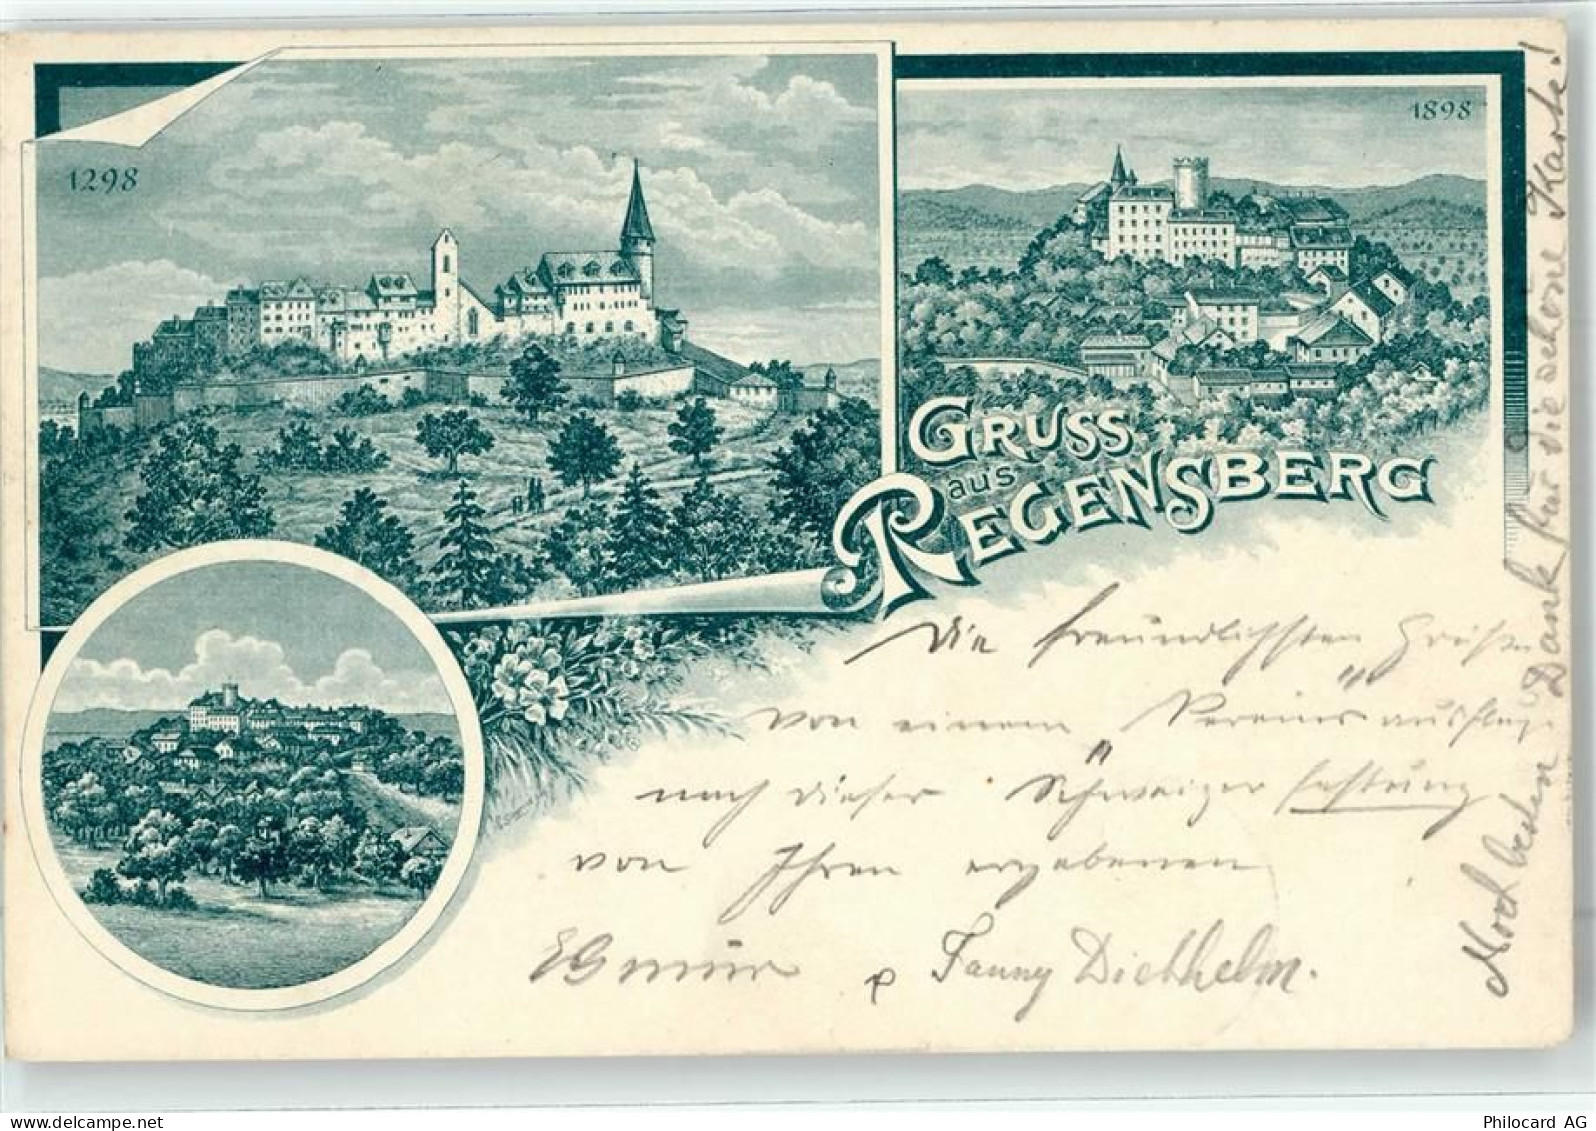 1298
1898
GRUSS
aus
REGENSBERG
Die freundlichsten Grüße
von einem Vereinsausflug
nach dieser Schweizer Festung
von Ihren ergebenen
& Fanny Diethelm.
Noch besten Dank für die schöne Karte!
www.delcampe.net
Philocard AG